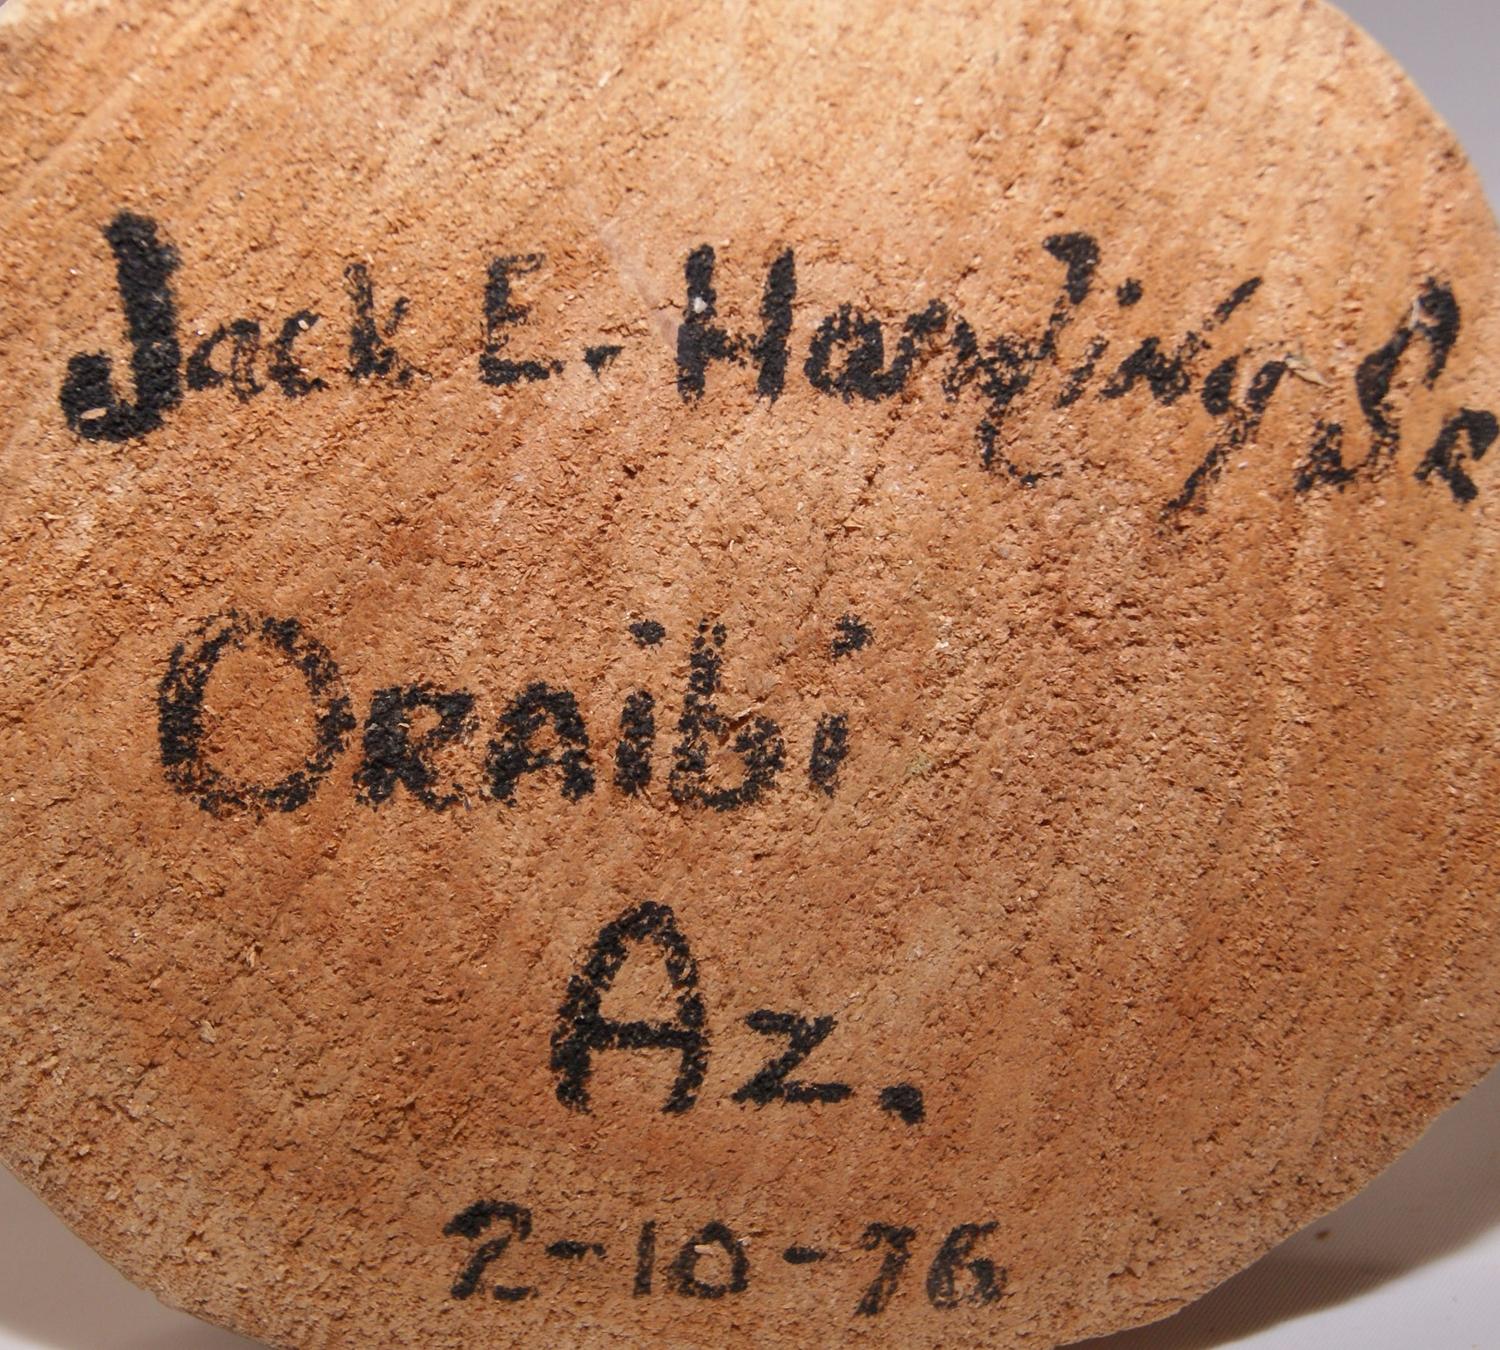 Jack E. Sr
Oraibi
Az.
2-10-76